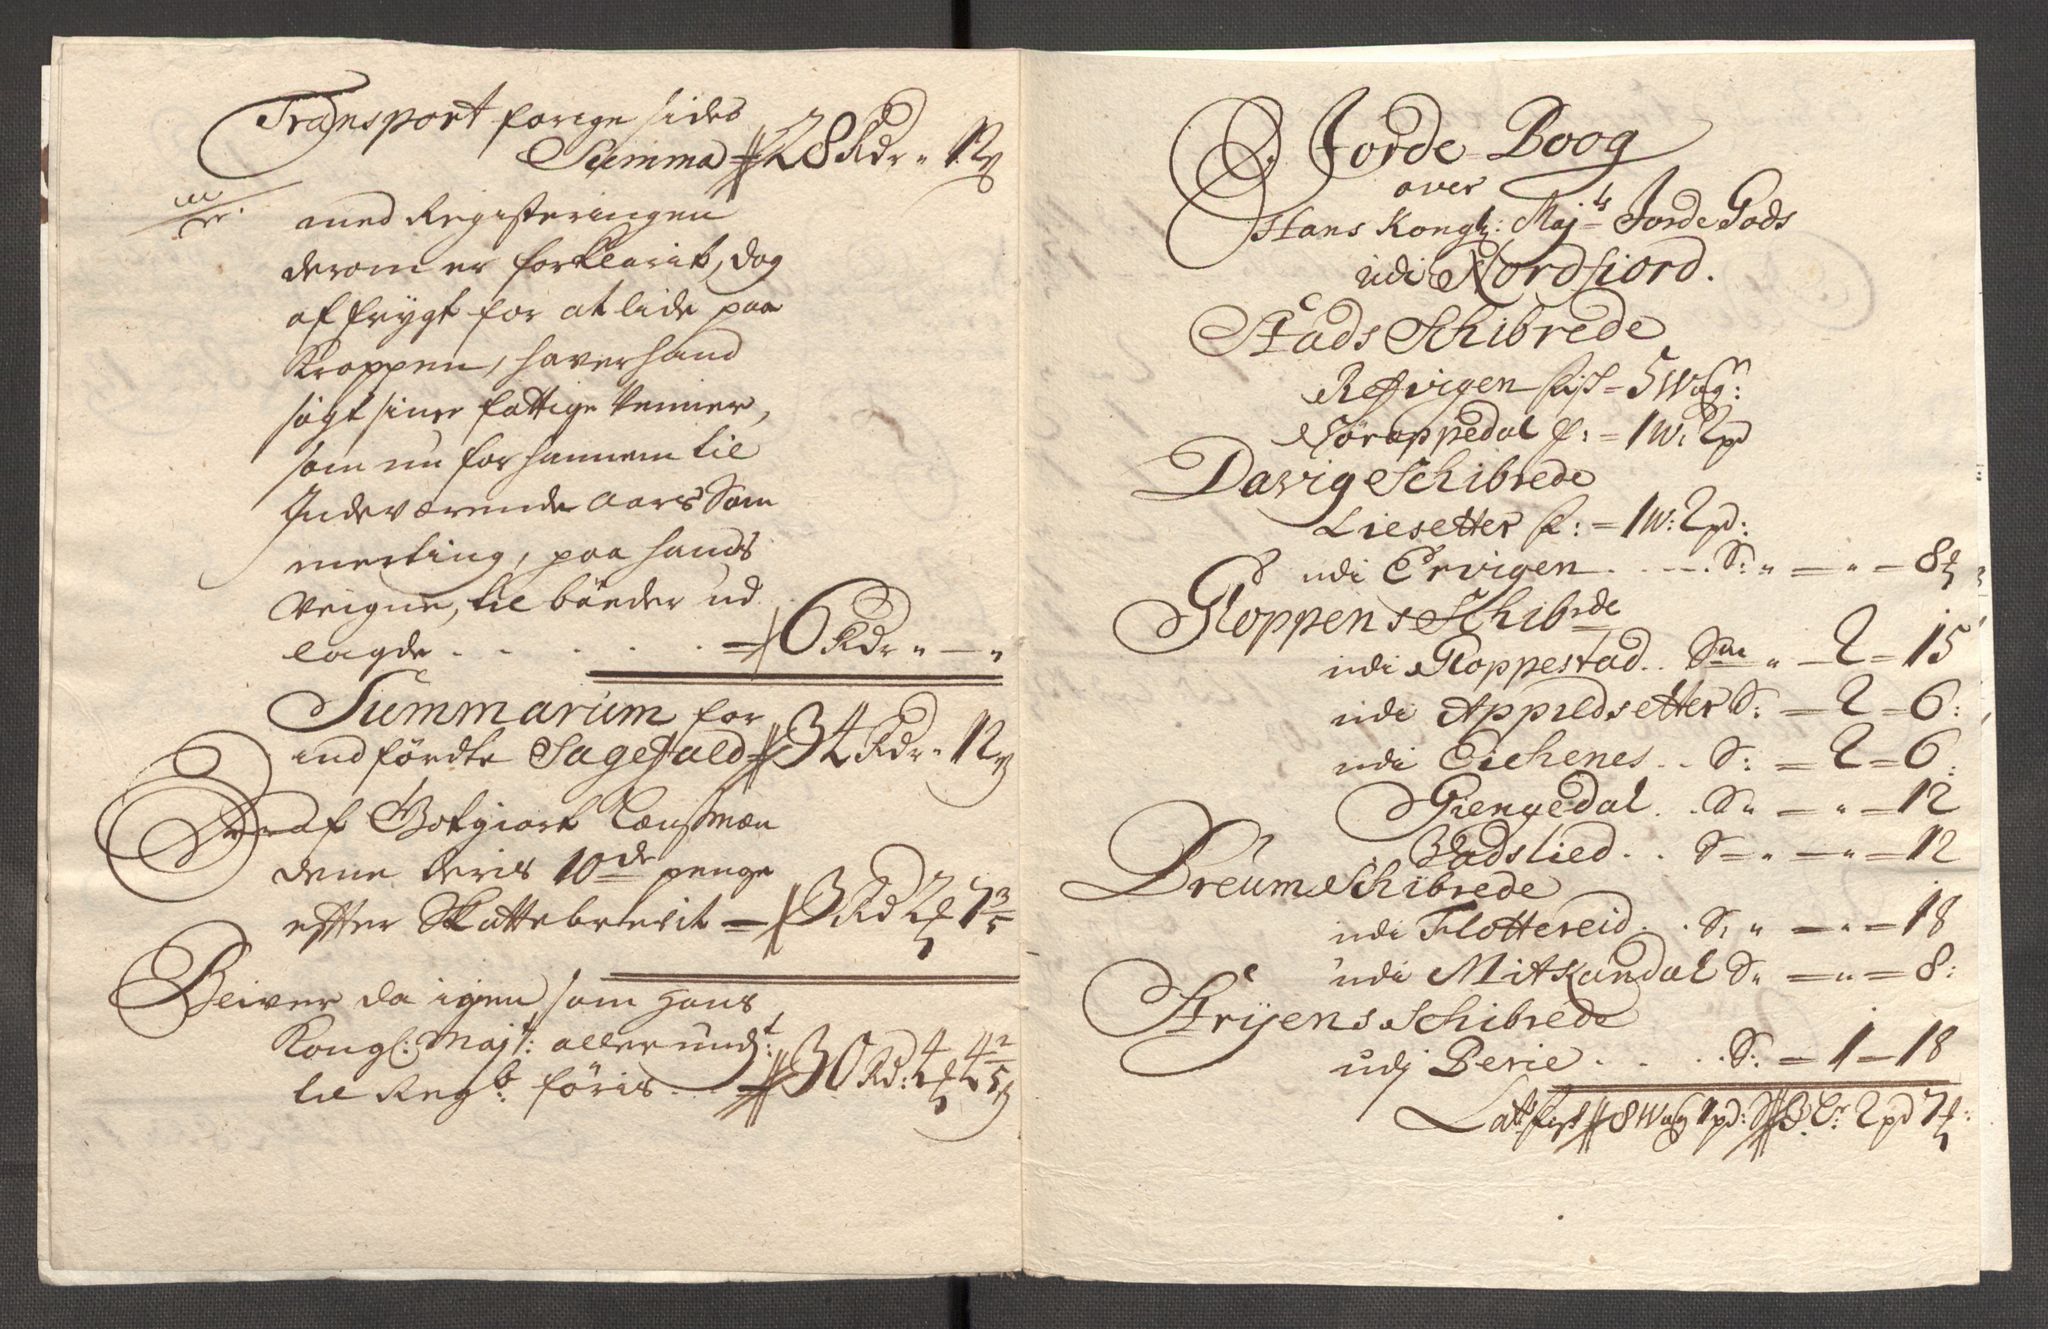 Transport forige sides
Summa 28 Rdr „ 12 ß
med Registeringen
derom er forklarit, dog
af frygt for at lide paa
Kroppen, haver hand
søgt sine fattige Venner,
som nu for hannem til
Indeværende Aars Som
merting, paa hands
Veigne, til bønder ud
lagde . . . . . 6 Rdr „ — „
Summarum for
indførdte Sagefald 34 Rdr „ 12 ß
Lænsmæn
dene deris 10de penge
effter Skattebrevit = 3 Rd 2 ℔ 7 3/5
Bliver da igien som Hans
Kongl: Majt: allerund:t
til Regb: føris . . 30 Rd: 4 ℔ 4 2/5 ß
Jorde-Boog
over
Hans Kongl: Maj=ts Jorde Gods
udi Nordfiord.
Stads Schibrede
Refvigen fisk = 5 Wog:
Nøroppedal f: = 1 W: 2 pd
Davig Schibrede
Liesetter f: = 1 W: 2 pd:
udi Ervigen . . — . S: „ — „ — 8 ℔
Gloppens Schibrde
udi Gloppestad . . Sm „ — 2 = 15
udi Appildsetter S: = 2 = 6:
udi Eichenes . . S: = 2 = 6:
Giengedal . . S „ — „ — 12
Vadslied . . S = „ — „ — 12
Dreüm Schibrede
udi Flottereid . . S: „ — „ — 18
udi Mitkandal S „ — „ — 8:
Strÿens Schibrede
udj Berie . . . . S: = 1 — 18
Lats fisk 8 Wog 1 pd: S 3 Lr: 2 pd 7 ℔: